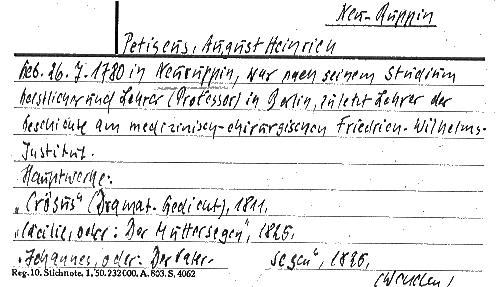 Neu-Ruppin
Petiscus, August Heinrich
Geb. 26. 7. 1780 in Neuruppin, war nach seinem Studium
Geistlicher und Lehrer (Professor) in Berlin, zuletzt Lehrer der
Geschichte am medizinisch-chirurgischen Friedrich-Wilhelms-
Institut.
Hauptwerke:
„Crösus" (Dramat. Gedicht), 1811,
„Cäcilie, oder: Der Muttersegen", 1825,
„Johannes, oder: Der Vater- segen", 1826,
Reg. 10. Stichnote. 1, 50. 232000. A. 803. S. 4062
(Wenden!